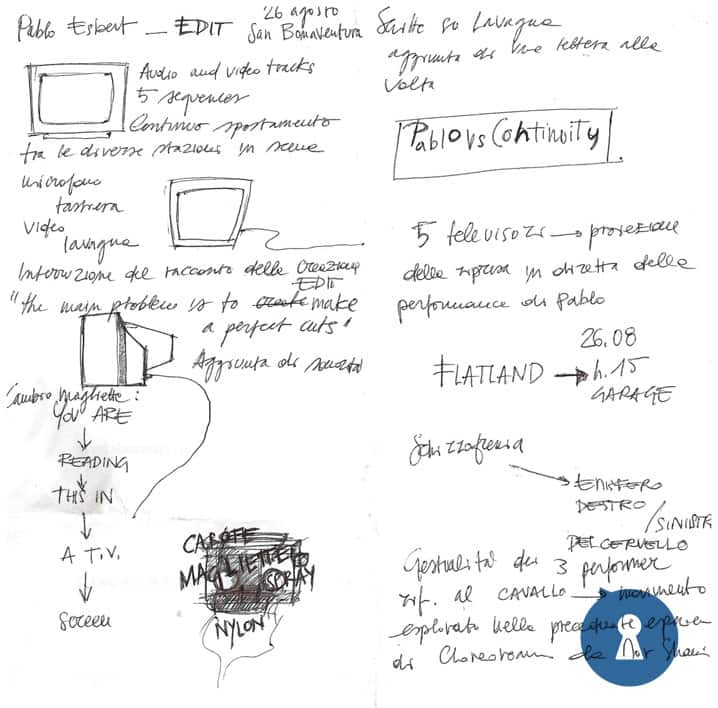 Pablo Esbert — EDIT
26 agosto
San Bonaventura
Audio and video tracks
5 sequences
Continuo spostamento
tra le diverse stazioni in scena
microfono
tastiera
video
lavagna
Introduzione del racconto della creazione
EDIT
"the main problem is to create make
a perfect cuts"
Aggiunta di
Cambio Magliette:
YOU ARE
READING
THIS IN
A T.V.
screen
MAGLIETTE
SPRAY
NYLON
Scritte su Lavagna
aggiunta di una lettera alla
volta
Pablo vs Continuity
5 televisori → proiezione
della ripresa in diretta della
performance di Pablo
FLATLAND → 26.08
h. 15
GARAGE
Schizzofrenia
EMISFERO
DESTRO
/SINISTR
DEL CERVELLO
Gestualità dei 3 performer
rif. al CAVALLO → movimento
esplorato nella precedente
di Choreoroam da